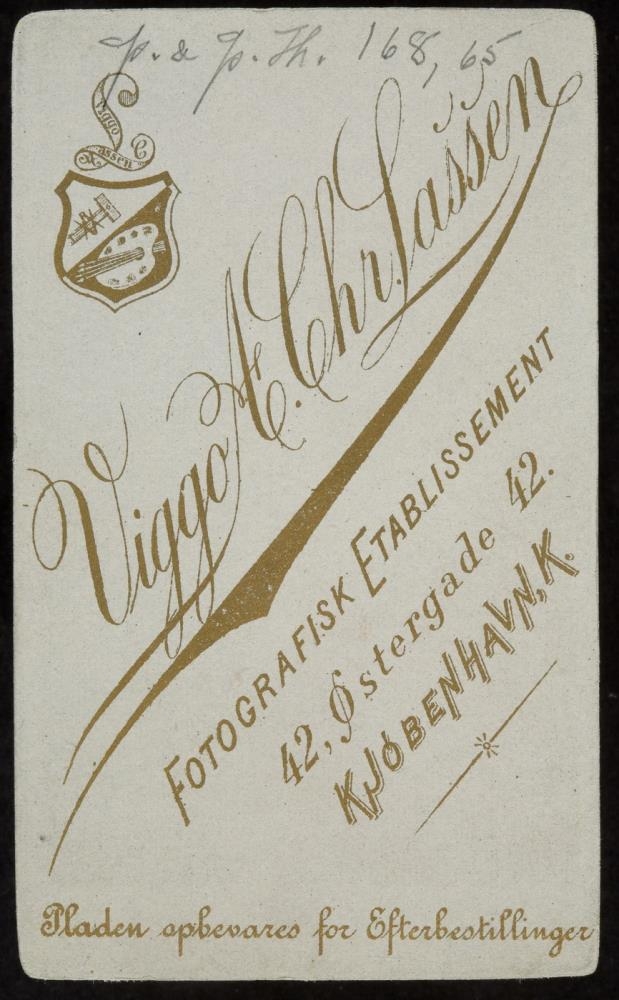 p. & p. Th. 168, 65
Viggo
Lassen
C
Viggo Æ. Chr. Lassen
FOTOGRAFISK ETABLISSEMENT
42, Østergade 42.
KJØBENHAVN, K.
Pladen opbevares for Efterbestillinger